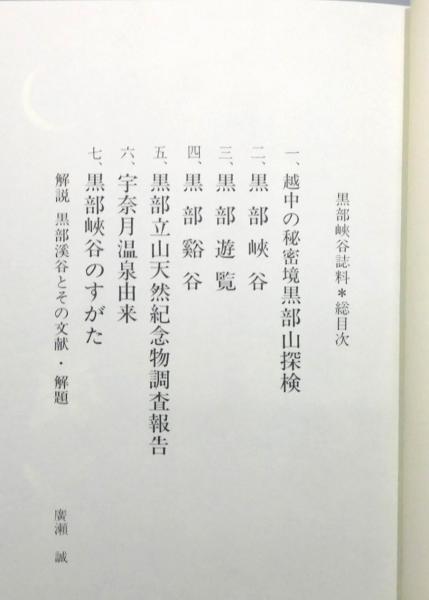 黒部峡谷誌料＊総目次
一、越中の秘密境黒部山探検
二、黒部峡谷
三、黒部遊覧
四、黒部谿谷
五、黒部立山天然紀念物調査報告
六、宇奈月温泉由来
七、黒部峡谷のすがた
解説 黒部渓谷とその文献・解題 廣瀬 誠